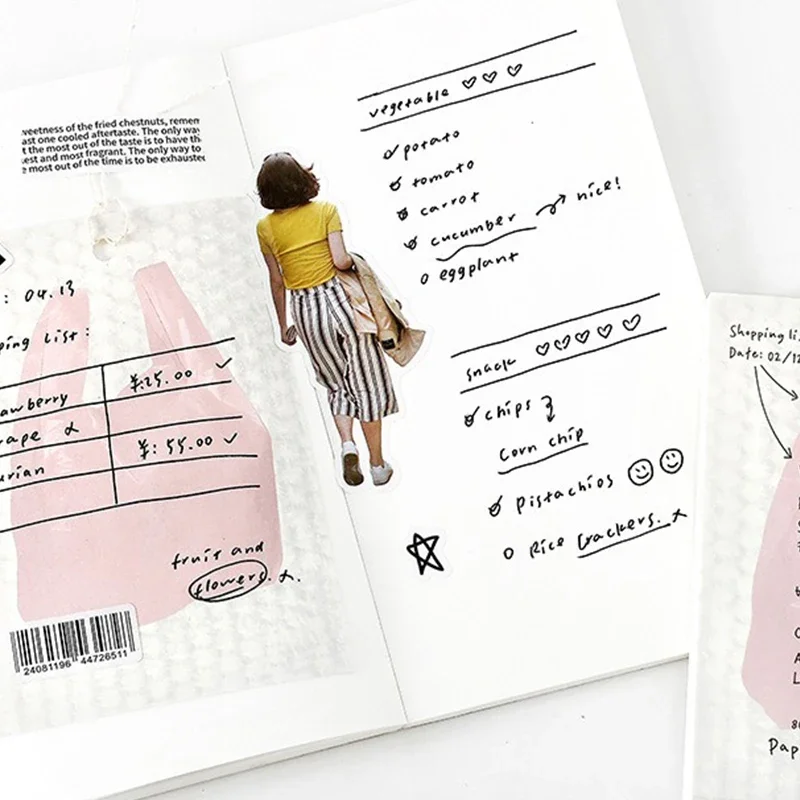 veetness of the fried chestnuts, remem
ast one cooled aftertaste. The only way
t the most out of the taste is to have th
est and most fragrant. The only way to
most out of the time is to be exhausted
: 04.13
ping List:
awberry ¥:25.00 ✓
rape x
urian ¥: 55.00 ✓
fruit and
flowers. x.
24081196 44726511
vegetable ♡ ♡ ♡
potato
tomato
carrot
cucumber → nice!
eggplant
snack ♡ ♡ ♡ ♡ ♡
chips
corn chip
pistachios ☺ ☺
Rice crackers. x
Shopping lis
Date: 02/12
Pap